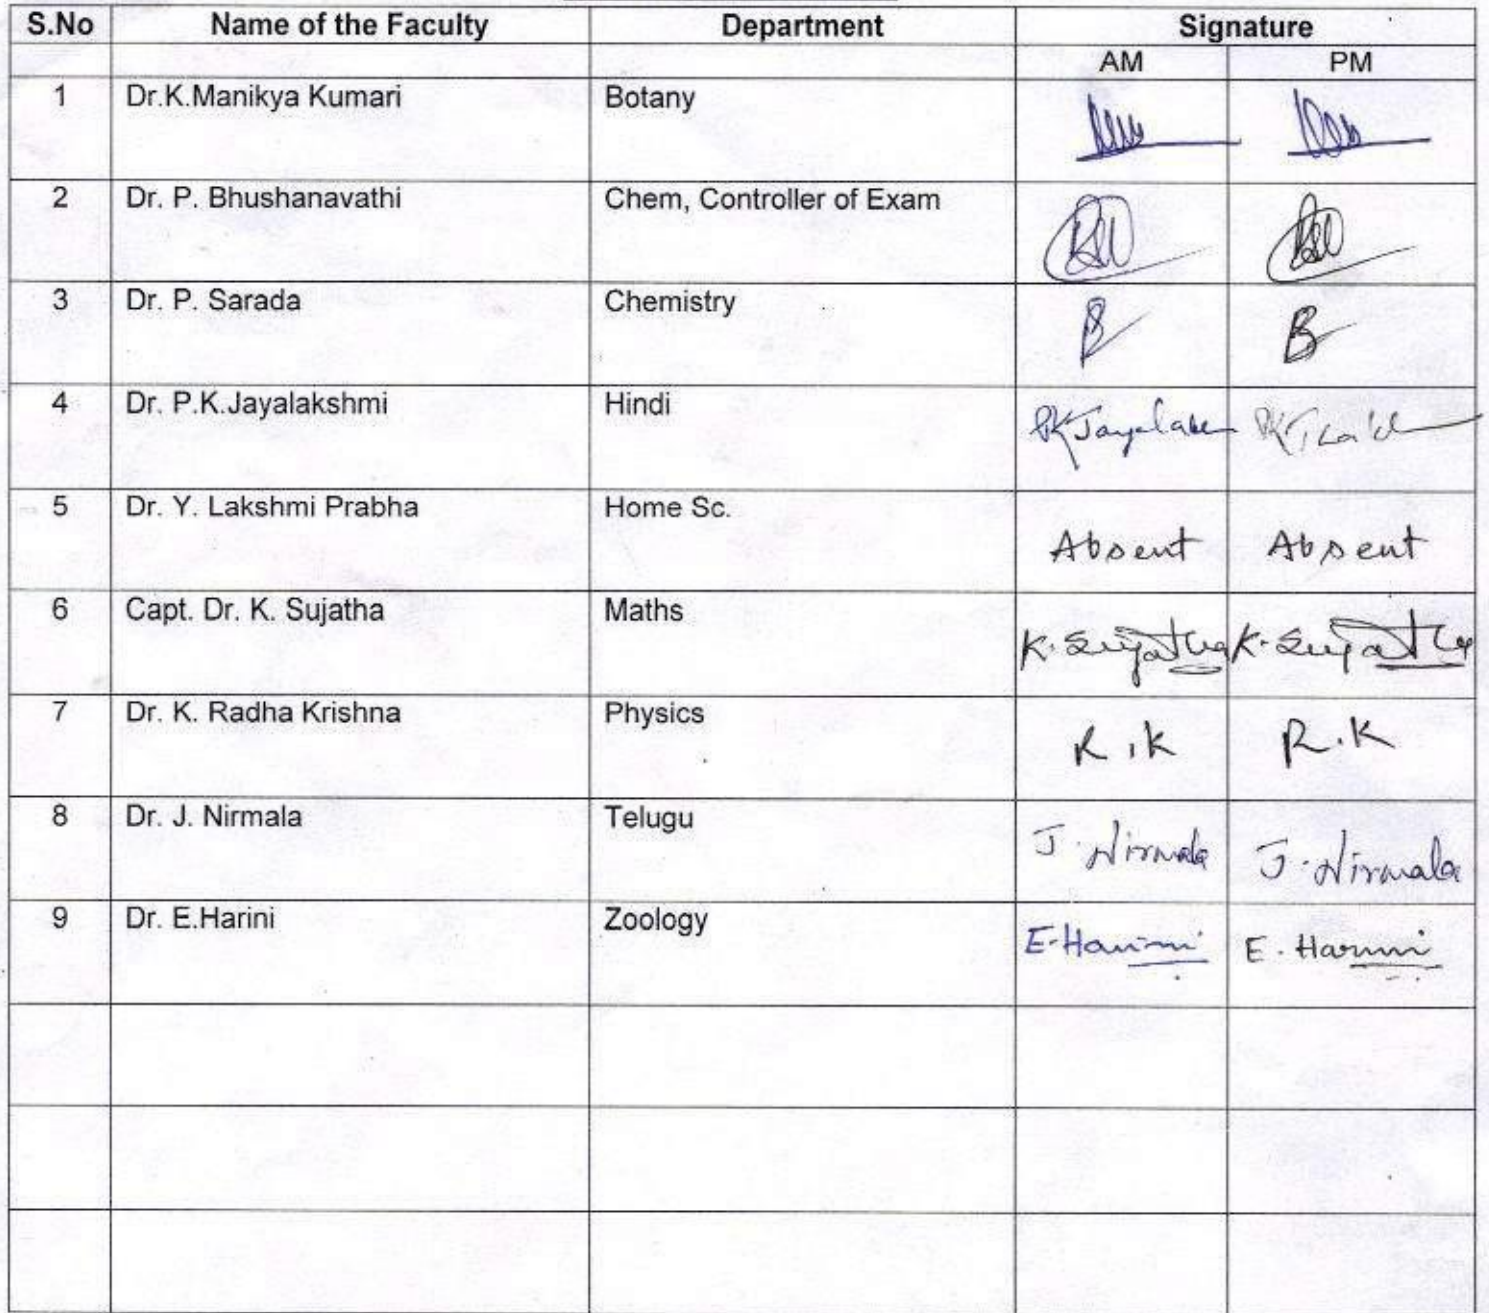 S.No Name of the Faculty Department Signature
AM PM
1 Dr.K.Manikya Kumari Botany
2 Dr. P. Bhushanavathi Chem, Controller of Exam
3 Dr. P. Sarada Chemistry
4 Dr. P.K.Jayalakshmi Hindi
5 Dr. Y. Lakshmi Prabha Home Sc. Absent Absent
6 Capt. Dr. K. Sujatha Maths K. Sujatha K. Sujatha
7 Dr. K. Radha Krishna Physics R.K R.K
8 Dr. J. Nirmala Telugu J. Nirmala J. Nirmala
9 Dr. E.Harini Zoology E. Harini E. Harini